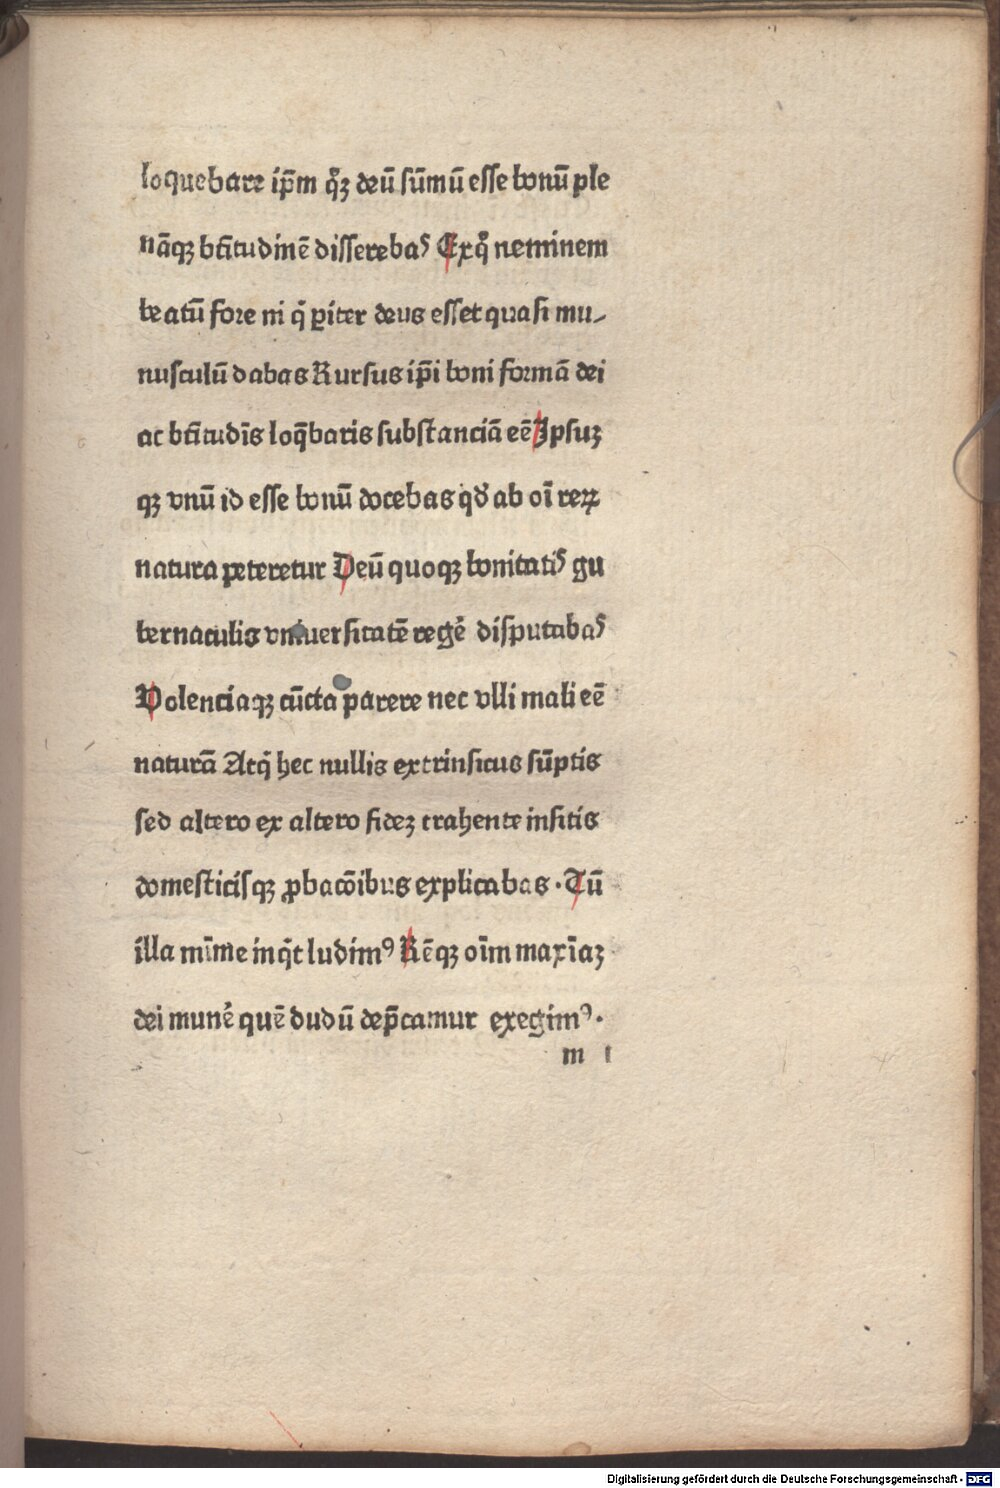 loquebare ip̄m qͦꝫ deū sūmū esse bonū ple
nāqꝫ bt̄itudinē dissereba⸍ Exqͦ neminem
beatū fore ni qͥ ꝑiter deus esset quasi mu⸗
nusculū dabas Rursus ip̄i boni formā dei
ac bt̄itudīs loq̄baris substanciā eē Ipsuꝫ
qꝫ vnū id esse bonū docebas qd̕ ab oī reꝝ
natura peteretur Deū quoqꝫ bonitati⸍ gu
bernaculis vniuersitatē regē disputaba⸍
Volenciaqꝫ cūcta parere nec vlli mali eē
naturā Atqͥ hec nullis extrinsicus sūptis
sed altero ex altero fideꝫ trahente insitis
domesticisqꝫ ꝓbacōibus explicabas · Tū
illa mīme inqͥt ludimꝰ Rēqꝫ oīm maxīaꝫ
dei munē quē dudū dep̄camur exegimꝰ ·
m 1
Digitalisierung gefördert durch die Deutsche Forschungsgemeinschaft - DFG